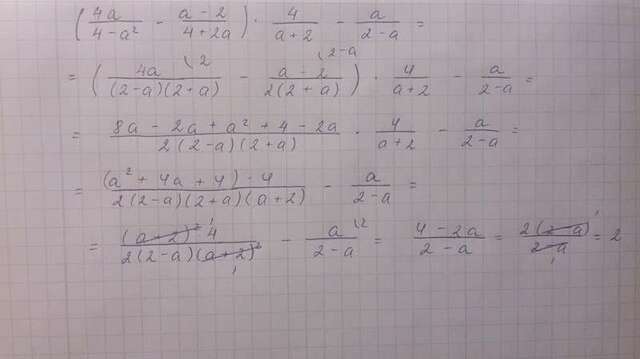 ( 4a/(4 - a²) - (a - 2)/(4 + 2a) ) · 4/(a + 2) - a/(2 - a) =
= ( 4a/((2 - a)(2 + a)) \2 - (a - 2)/(2(2 + a)) \2-a ) · 4/(a + 2) - a/(2 - a) =
= (8a - 2a + a² + 4 - 2a)/(2(2 - a)(2 + a)) · 4/(a + 2) - a/(2 - a) =
= ((a² + 4a + 4) · 4)/(2(2 - a)(2 + a)(a + 2)) - a/(2 - a) =
= ((a + 2)² ¹ · 4)/(2(2 - a)(a + 2)² ₁) - a/(2 - a) \2 = (4 - 2a)/(2 - a) = (2(2 - a) ¹)/(2 - a ₁) = 2